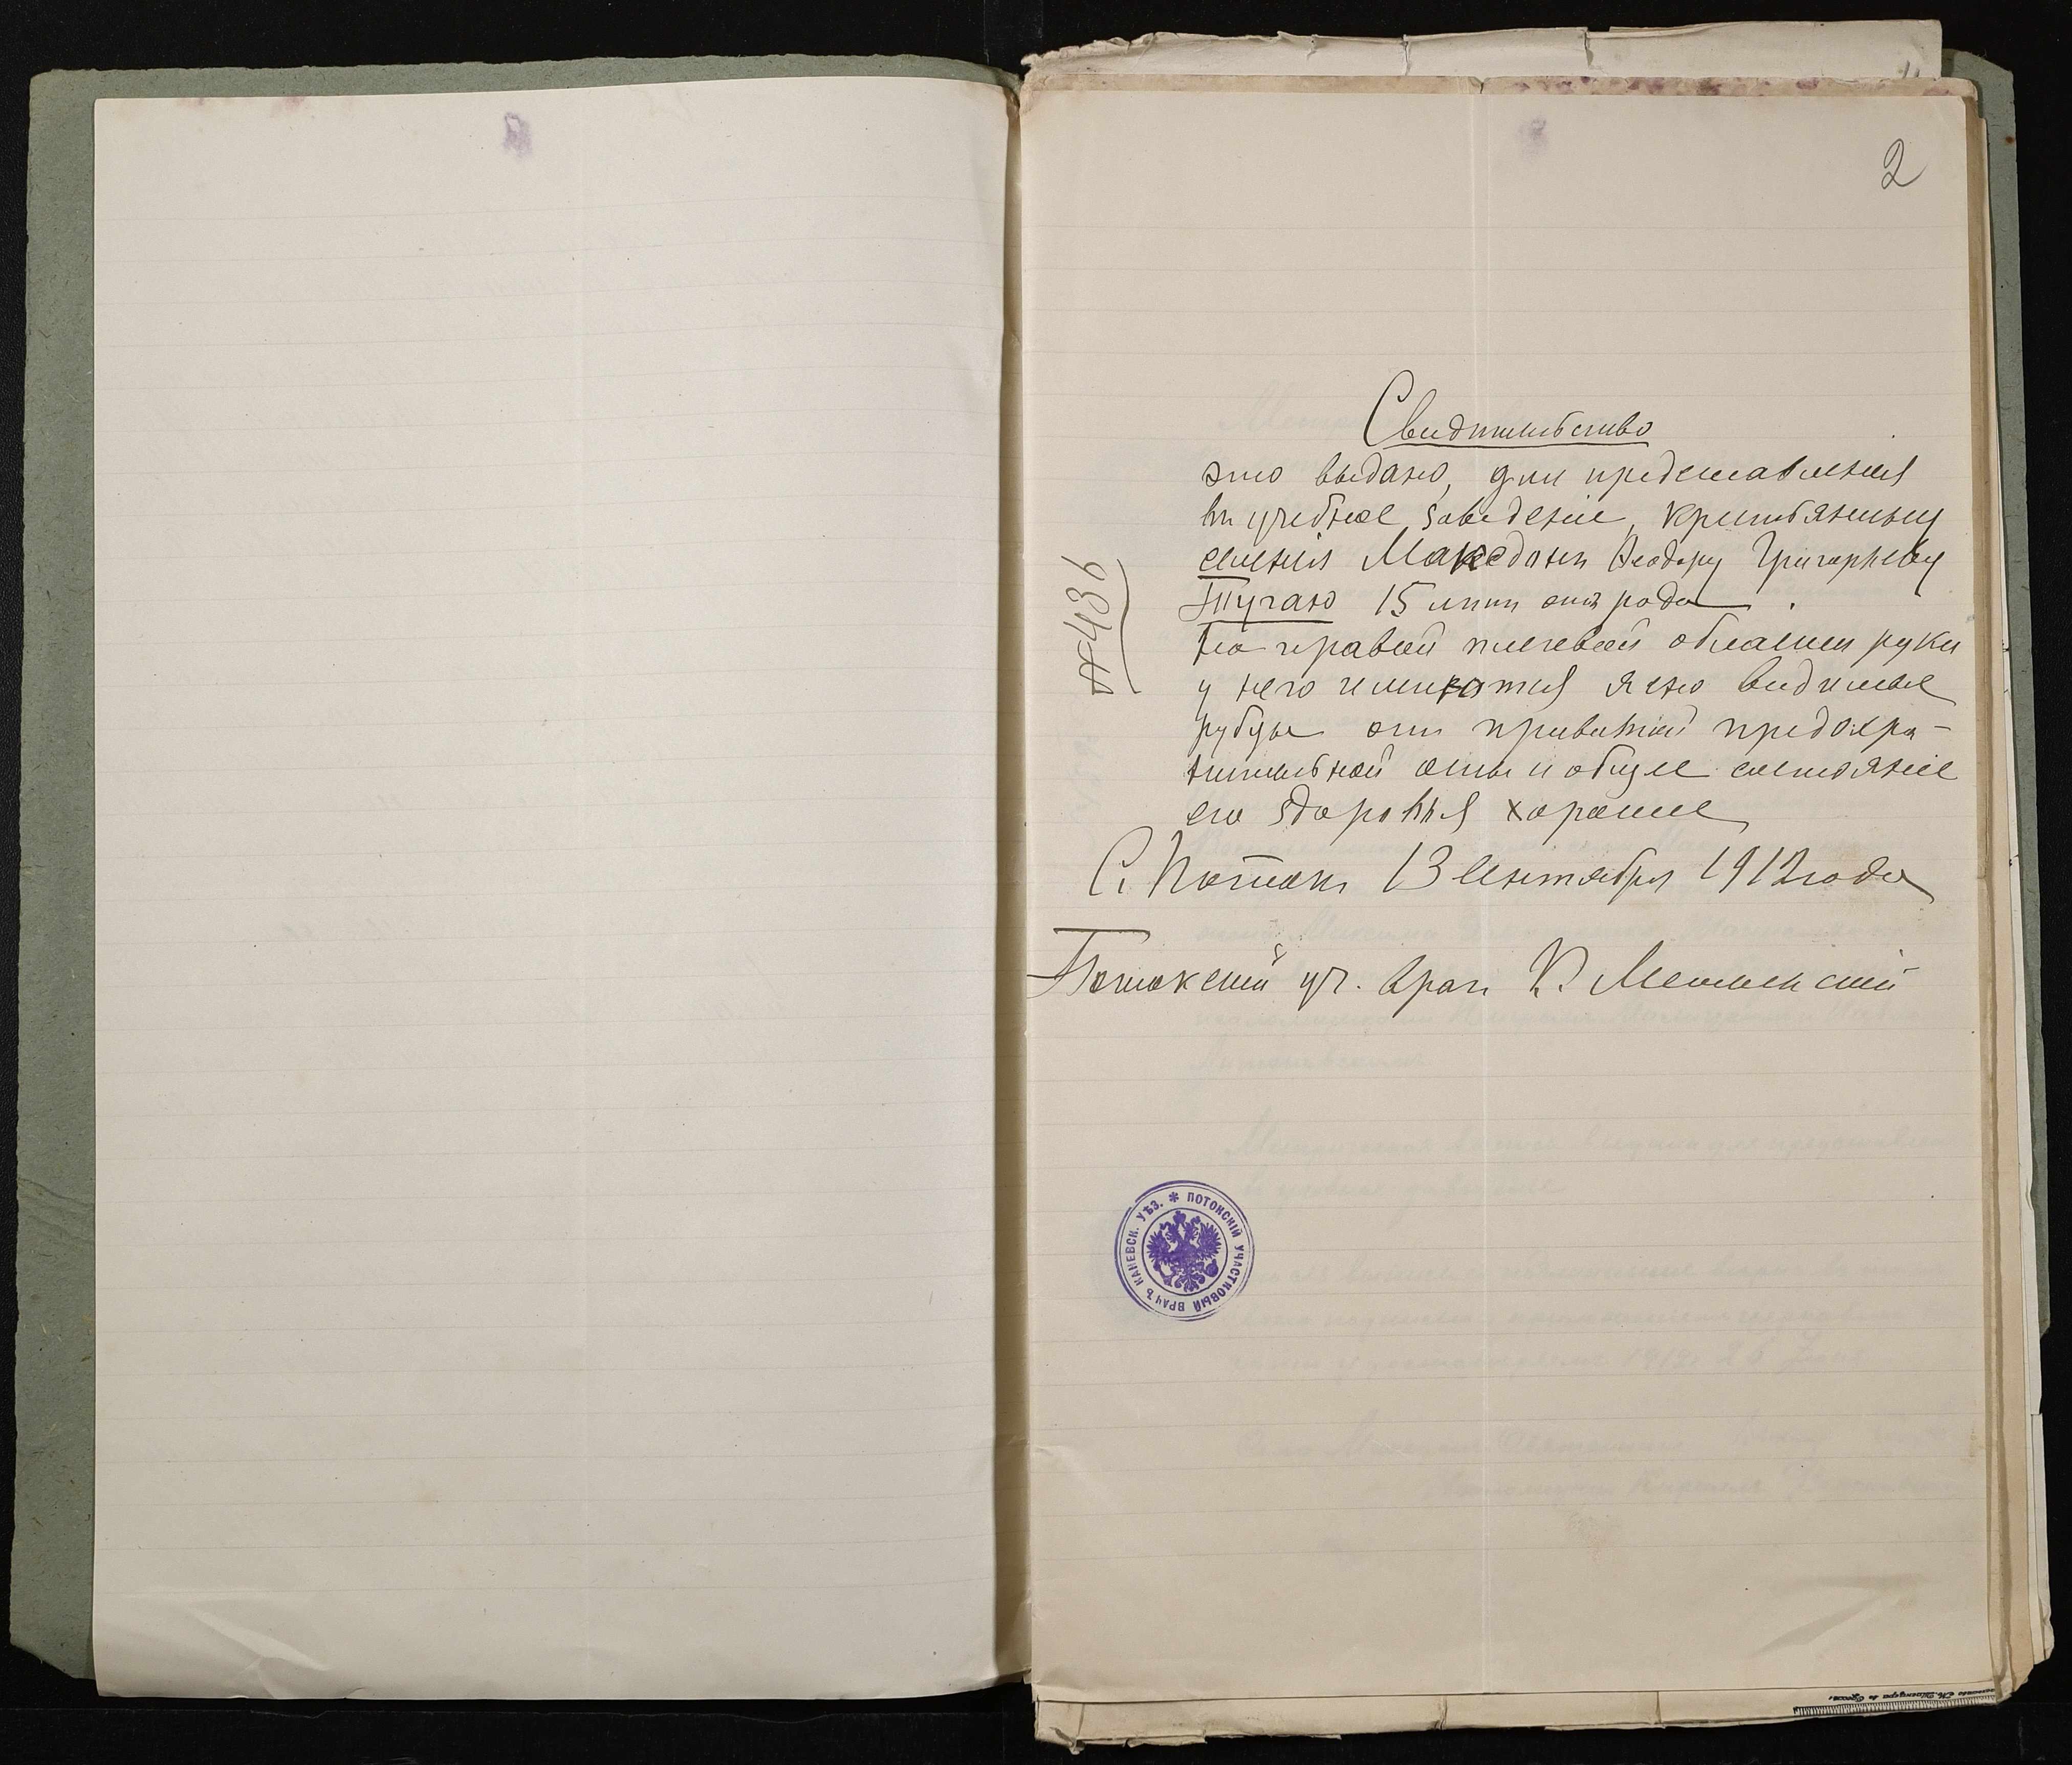 2
Свидѣтельство
это выдано, для представленія
въ учебное заведеніе, крестьянину
селенія Македонъ Ѳеодору Григорьеву
Тугаю 15 лѣтъ отъ роду.
На правой плечевой области руки
у него имѣются ясно видимые
рубцы отъ привитой предохра-
нительной оспы и общее состояніе
его здоровья хорошее
С. Потокъ 13 Сентября 1912 года
Потокскій уч. врачъ К.
№ 436
ПОТОКСКІЙ УЧАСТКОВЫЙ ВРАЧЪ КАНЕВСК. УѢЗ. *